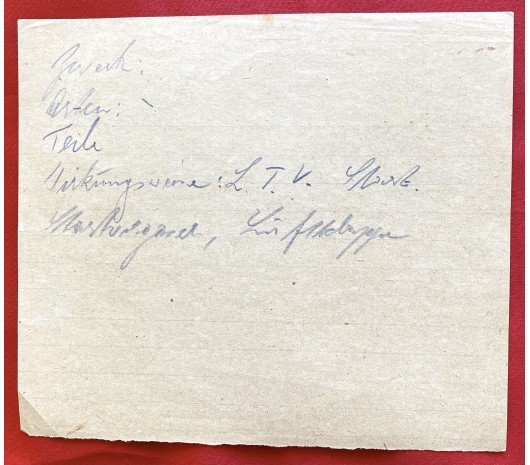 Zweck:
Arten: -
Teile
Wirkungsweise: L. T. V. Start.
Startvergaser, Luftklappe